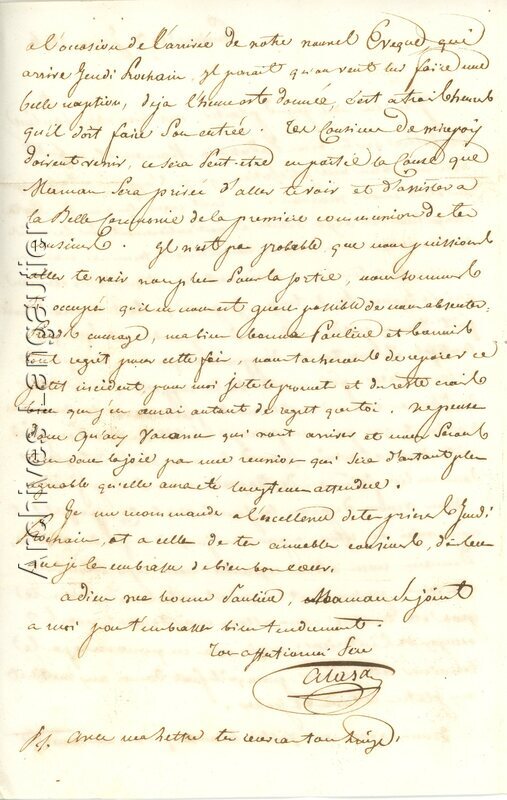 a l'occasion de l'arrivée de notre nouvel Eveque qui
arrive Jeudi Prochain. Il parait qu'on veut lui faire une
belle reception, deja l'heure est donnée, c'est a trois heures
qu'il doit faire son entrée. Tes Cousines de mirepoix
doivent venir, ce sera Peut etre en partie la Cause que
Maman sera privée d'aller te voir et d'assister a
la Belle Ceremonie de la premiere communion de tes
cousines. Il n'est pas probable, que nous puissions
aller te voir non plus Pour la sortie, nous sommes
occupés qu'il nous est quere possible de nous absenter.
Prends courage, ma bien bonne Pauline et bannis
tout regret pour cette fois, nous tacherons de reparer ce
petit incident pour moi je te le promet et du reste crois
bien que j'en aurai autant de regret que toi. Ne pense
donc qu'aux Vacances qui vont arriver et nous serons
bien dans la joie par une reunion qui sera d'autant plus
agreable qu'elle aura été longtems attendue.
Je me recommande a l'excellence de tes prieres Jeudi
Prochain, et a celle de tes aimables cousines, dis leur
que je les embrasse de bien bon coeur.
adieu ma bonne Pauline, Maman se joint
a moi pour t'embrasser bien tendrement.
Ton affectionné Pere
avec ma lettre tu
Archives Languier